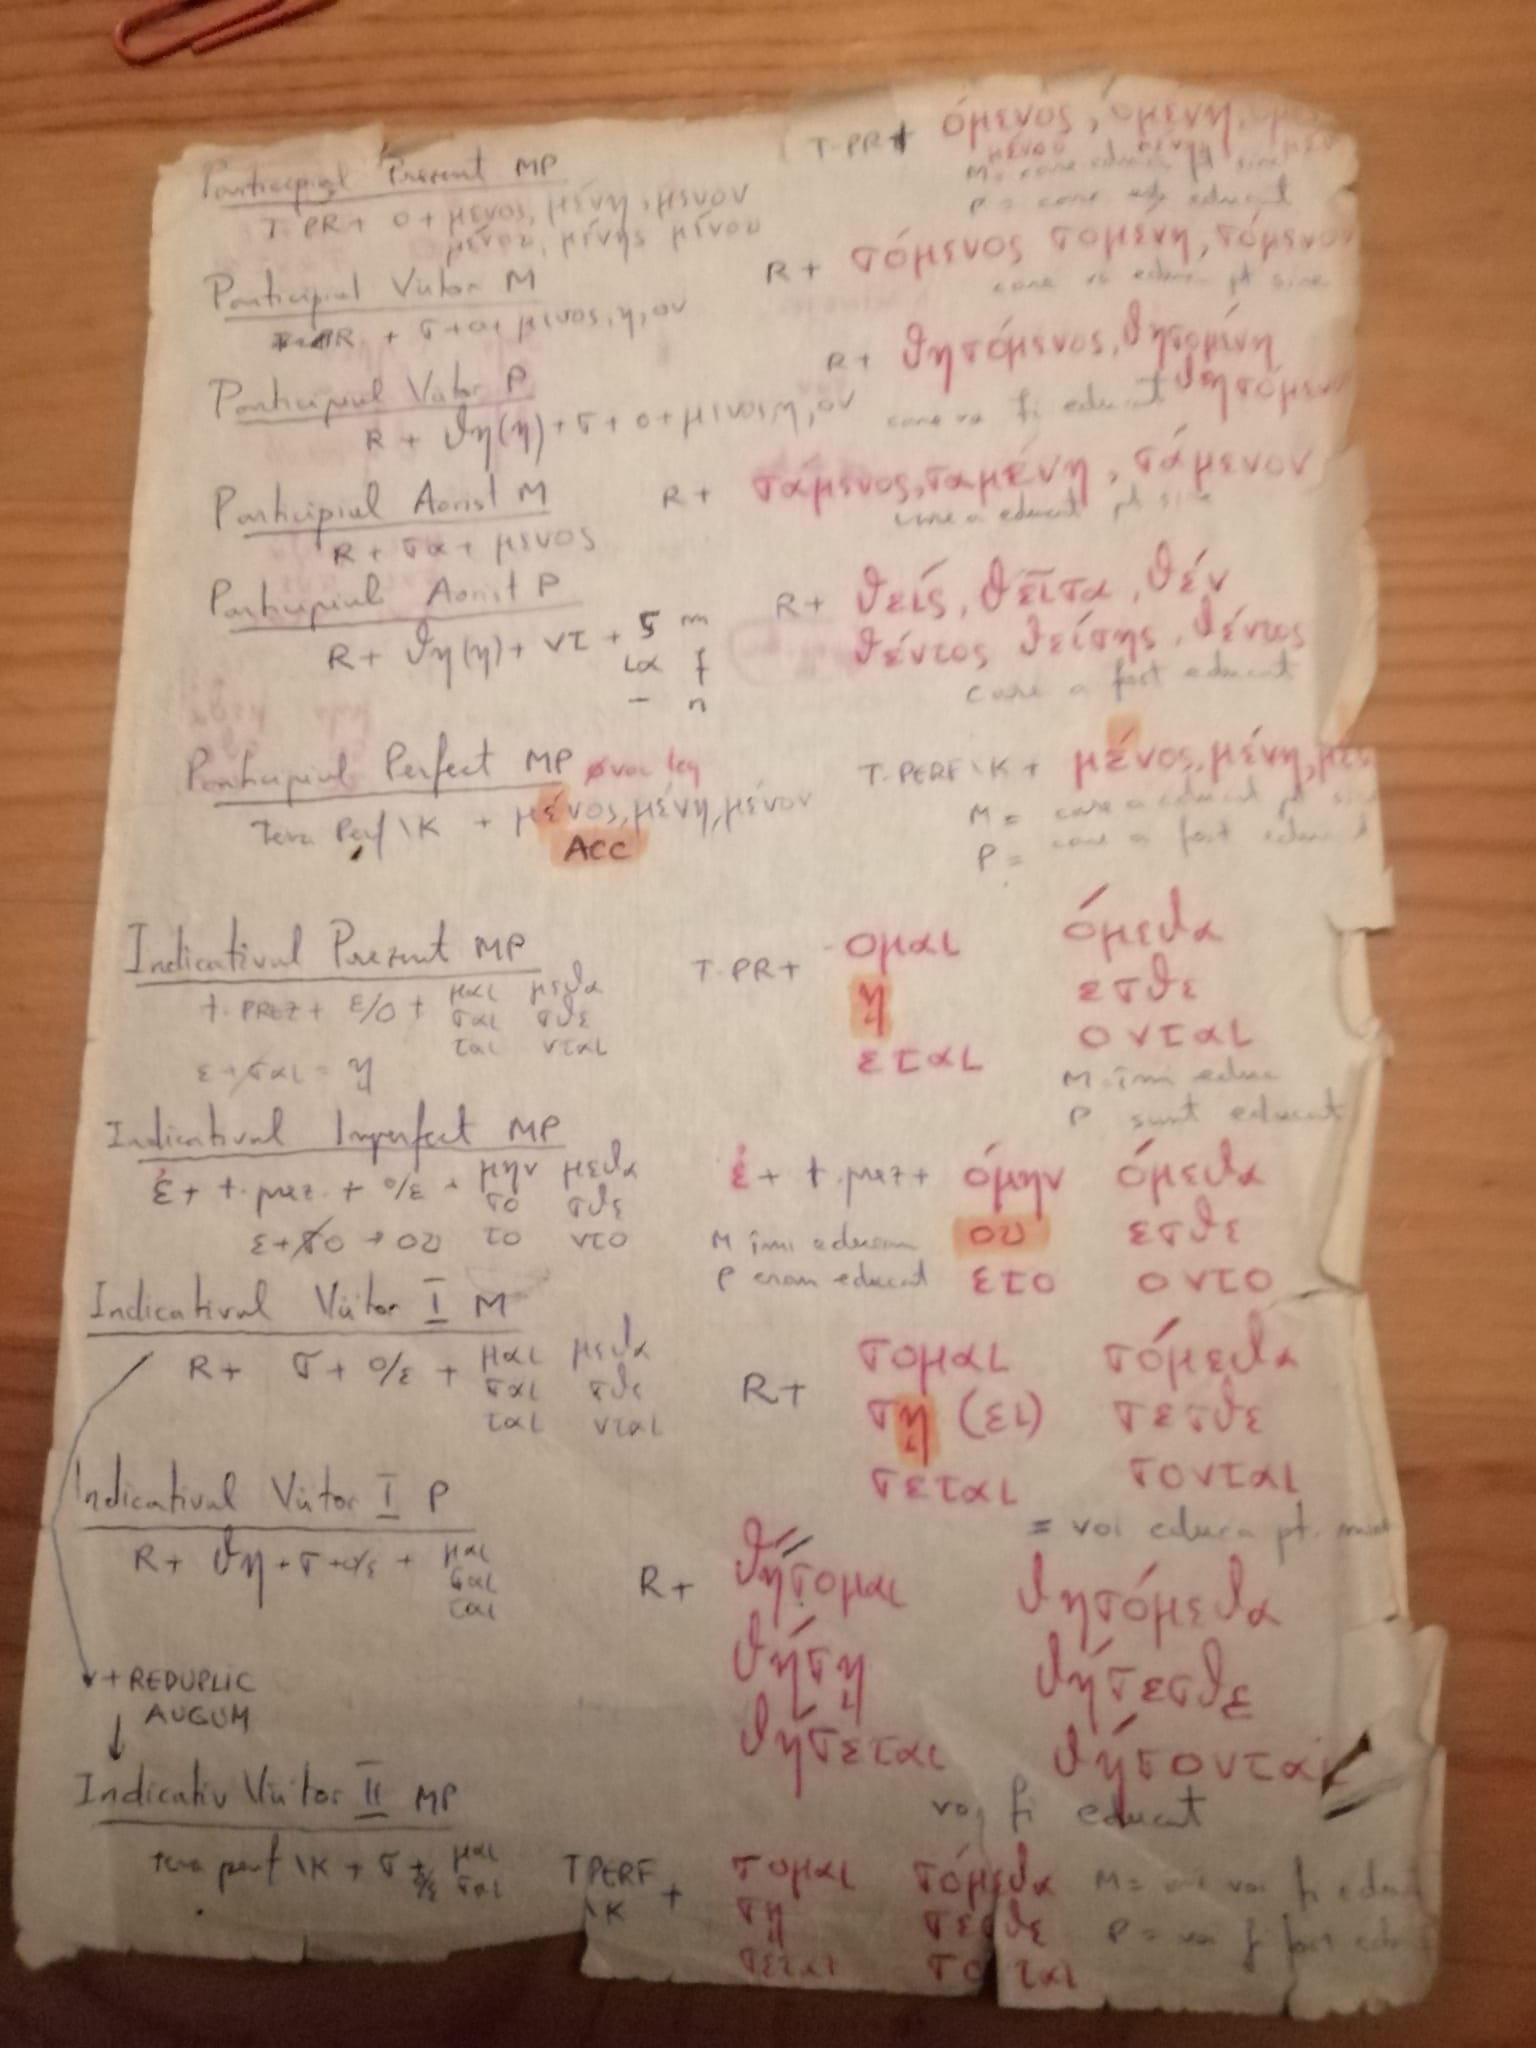 Participiul Prezent MP
T. PR + ο + μενος, μένη, μενον
μένου, μένης μένου
T. PR + όμενος, ομενη,
M = care educă pt sine
P = care este educat
Participiul Viitor M
R + σ + ο + μενος, η, ον
R + σόμενος σομενη, σόμενον
care va educa pt sine
Participiul Viitor P
R + ϑη(η) + σ + ο + μενος, η, ον
R + ϑησόμενος, ϑησομένη
ϑησόμενον
care va fi educat
Participiul Aorist M
R + σα + μενος
R + σάμενος, σαμένη, σάμενον
care a educat pt sine
Participiul Aorist P
R + ϑη(η) + ντ + ς m
ια f
- n
R + ϑείς, ϑεῖσα, ϑέν
ϑέντος ϑείσης, ϑέντος
care a fost educat
Participiul Perfect MP
Tema Perf \K + μένος, μένη, μένον
ACC
T. PERF \K + μένος, μένη,
M = care a educat pt sine
P = care a fost educat
Indicativul Prezent MP
t. PREZ + ε/ο + μαι μεϑα
σαι σϑε
ται νται
ε + σαι = ῃ
T. PR + ομαι όμεϑα
ῃ εσϑε
εται ονται
M îmi educ
P sunt educat
Indicativul Imperfect MP
ἐ + t. prez. + ο/ε + μην μεϑα
σο σϑε
ε + σο → ου το ντο
ἐ + t. prez + όμην όμεϑα
M îmi educam ου εσϑε
P eram educat ετο οντο
Indicativul Viitor I M
R + σ + ο/ε + μαι μεϑα
σαι σϑε
ται νται
R + σομαι σόμεϑα
σῃ (ει) σεσϑε
σεται σονται
= voi educa pt. mine
Indicativul Viitor I P
R + ϑη + σ + ο/ε + μαι
σαι
ται
R + ϑήσομαι ϑησόμεϑα
ϑήσῃ ϑήσεσϑε
ϑήσεται ϑήσονται
voi fi educat
+ REDUPLIC
AUGUM
Indicativ Viitor II MP
tema perf \K + σ + ο/ε μαι
σαι
TPERF \K + σομαι σόμεϑα
σῃ σεσϑε
σεται